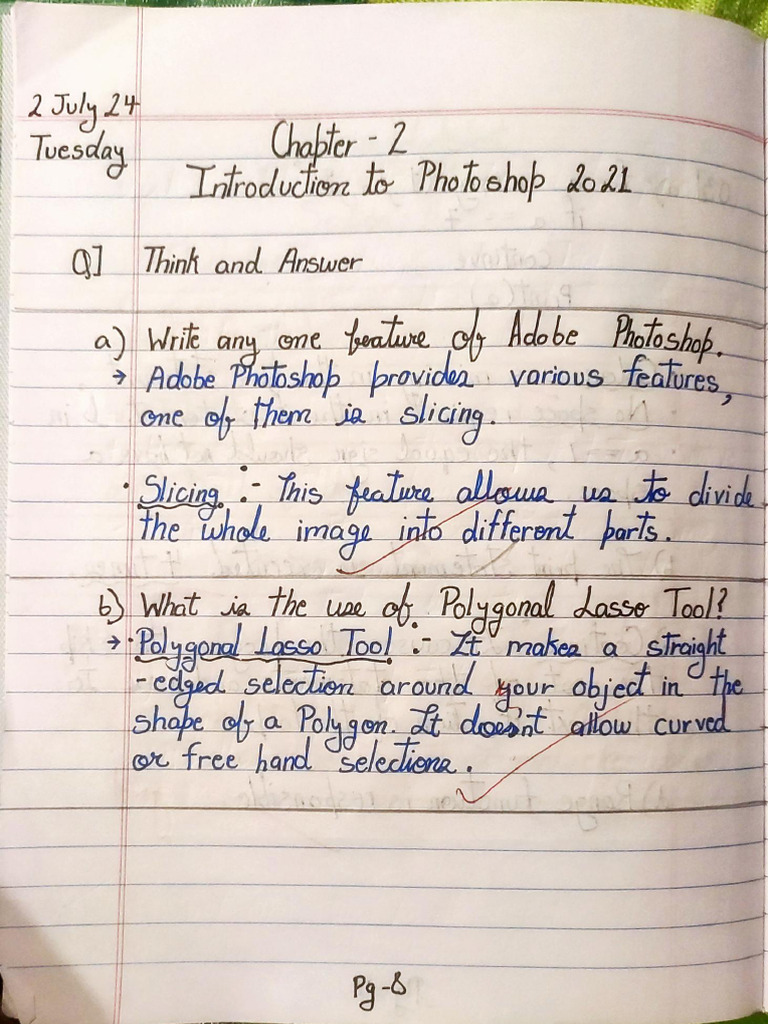 2 July 24
Tuesday
Chapter - 2
Introduction to Photoshop 2021
Q] Think and Answer
a) Write any one feature of Adobe Photoshop.
→ Adobe Photoshop provides various features,
one of them is slicing.
• Slicing :- This feature allows us to divide
the whole image into different parts.
b) What is the use of Polygonal Lasso Tool?
→ • Polygonal Lasso Tool :- It makes a straight
-edged selection around your object in the
shape of a Polygon. It doesn't allow curved
or free hand selections.
Pg-8